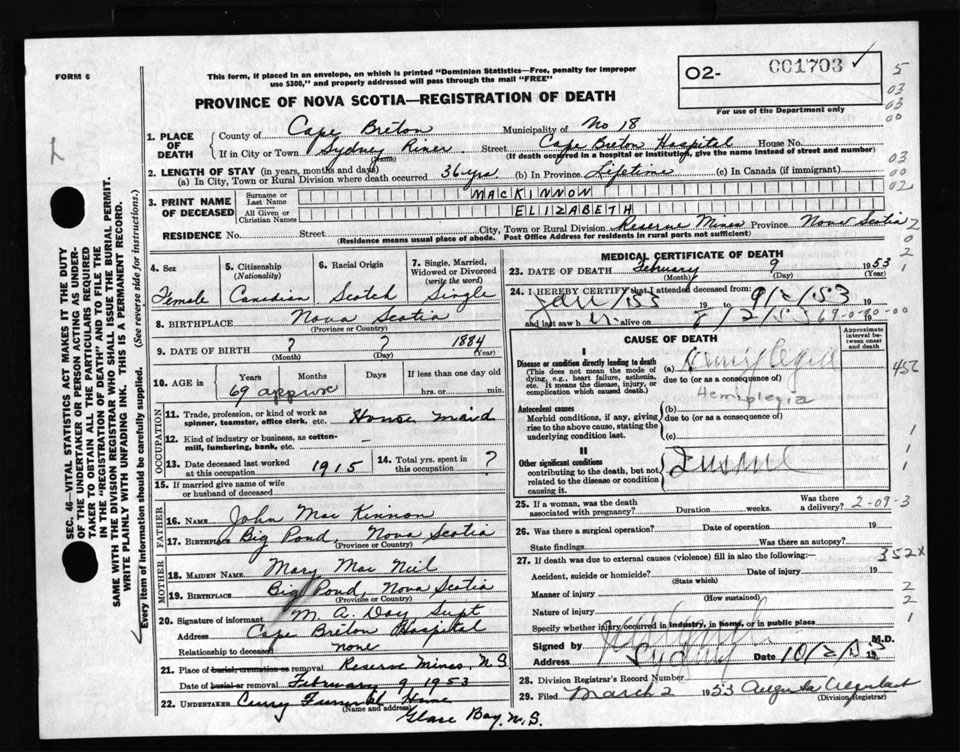 FORM 6
This form, if placed in an envelope, on which is printed "Dominion Statistics—Free, penalty for improper
use $300," and properly addressed will pass through the mail "FREE"
PROVINCE OF NOVA SCOTIA—REGISTRATION OF DEATH
O2- 001703 ✓
For use of the Department only
5
03
03
00
03
00
02
2
0
2
1
1. PLACE OF DEATH { County of Cape Breton Municipality of No 18
If in City or Town Sydney River Street Cape Breton Hospital House No.
(Name) (If death occurred in a hospital or institution, give the name instead of street and number)
2. LENGTH OF STAY (in years, months and days)
(a) In City, Town or Rural Division where death occurred 36 yrs (b) In Province Lifetime (c) In Canada (if immigrant)
3. PRINT NAME OF DECEASED { Surname or Last Name MACKINNON
All Given or Christian Names ELIZABETH
RESIDENCE No. Street City, Town or Rural Division Reserve Mines Province Nova Scotia
(Residence means usual place of abode. Post Office Address for residents in rural parts not sufficient)
SEC. 46—VITAL STATISTICS ACT MAKES IT THE DUTY
OF THE UNDERTAKER OR PERSON ACTING AS UNDER-
TAKER TO OBTAIN ALL THE PARTICULARS REQUIRED
IN THE "REGISTRATION OF DEATH" AND TO FILE THE
SAME WITH THE DIVISION REGISTRAR WHO SHALL ISSUE THE BURIAL PERMIT.
WRITE PLAINLY WITH UNFADING INK. THIS IS A PERMANENT RECORD.
Every item of information should be carefully supplied. (See reverse side for instructions.)
4. Sex Female
5. Citizenship (Nationality) Canadian
6. Racial Origin Scotch
7. Single, Married, Widowed or Divorced (write the word) Single
8. BIRTHPLACE Nova Scotia
(Province or Country)
9. DATE OF BIRTH ? ? 1884
(Month) (Day) (Year)
10. AGE in { Years Months Days If less than one day old
69 approx hrs. or min.
OCCUPATION
11. Trade, profession, or kind of work as spinner, teamster, office clerk, etc. House maid
12. Kind of industry or business, as cotton-mill, lumbering, bank, etc. –
13. Date deceased last worked at this occupation 1915 14. Total yrs. spent in this occupation ?
15. If married give name of wife or husband of deceased
FATHER
16. NAME John Mac Kinnon
17. BIRTHPLACE Big Pond, Nova Scotia
(Province or Country)
MOTHER
18. MAIDEN NAME Mary Mac Neil
19. BIRTHPLACE Big Pond, Nova Scotia
(Province or Country)
20. Signature of informant M. A. Day Supt
Address Cape Breton Hospital
Relationship to deceased none
21. Place of burial, cremation or removal Reserve Mines, N.S.
Date of burial or removal February 9 1953
22. UNDERTAKER Curry Funeral Home
(Name and address)
Glace Bay, N.S.
MEDICAL CERTIFICATE OF DEATH
23. DATE OF DEATH February 9 1953
(Month) (Day) (Year)
24. I HEREBY CERTIFY that I attended deceased from:
Jan/53 19 to 9/2/53 19
and last saw h alive on 8/2/53 19
69-0-00-00
CAUSE OF DEATH
Approximate interval between onset and death
I
Disease or condition directly leading to death
(This does not mean the mode of dying, e.g., heart failure, asthenia, etc. It means the disease, injury, or complication which caused death.)
(a) Hemiplegia
due to (or as a consequence of)
Hemiplegia
Antecedent causes
Morbid conditions, if any, giving rise to the above cause, stating the underlying condition last.
(b)
due to (or as a consequence of)
(c)
II
Other significant conditions
contributing to the death, but not related to the disease or condition causing it.
Insane
1
1
1
25. If a woman, was the death associated with pregnancy? Duration weeks. Was there a delivery? 2-09-3
26. Was there a surgical operation? Date of operation 19
State findings Was there an autopsy?
27. If death was due to external causes (violence) fill in also the following: 352x
Accident, suicide or homicide? Date of injury 19
(State which)
Manner of injury 2
(How sustained)
Nature of injury 2
1
Specify whether injury occurred in industry, in home, or in public place
Signed by M.D.
Address Sydney Date 10/2/53 19
28. Division Registrar's Record Number
29. Filed March 2 1953
(Division Registrar)